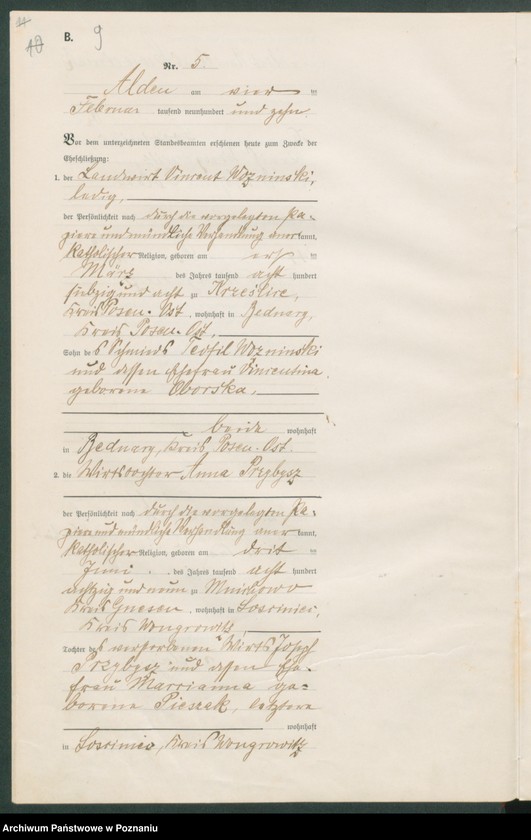 11
10
B. 9
Nr. 5.
Alden am vier ten
Februar tausend neunhundert und zehn.
Vor dem unterzeichneten Standesbeamten erschienen heute zum Zwecke der
Eheschließung:
1. der Landwirt Vincent Wozninski,
ledig,
der Persönlichkeit nach durch die vorgelegten Pa-
piere und mündliche Verhandlung aner kannt,
katholischer Religion, geboren am
März des Jahres tausend acht hundert
siebzig und acht zu
Kreis Posen-Ost, wohnhaft in Bednary,
Kreis Posen-Ost,
Sohn des Schmieds Teofil Wozninski
und dessen Ehefrau Vincentina
geborene Oborska,
beide wohnhaft
in Bednary, Kreis Posen-Ost.
2. die Wirtstochter Anna Przybysz
der Persönlichkeit nach durch die vorgelegten Pa-
piere und mündliche Verhandlung aner kannt,
katholischer Religion, geboren am ten
Juni des Jahres tausend acht hundert
achtzig und neun zu
Kreis Gnesen, wohnhaft in
Kreis Wongrowitz,
Tochter des verstorbenen Wirts Josef
Przybysz und dessen Ehe-
frau Marrianna ge-
borene Pieszak, letztere
wohnhaft
in Kreis Wongrowitz
Archiwum Państwowe w Poznaniu